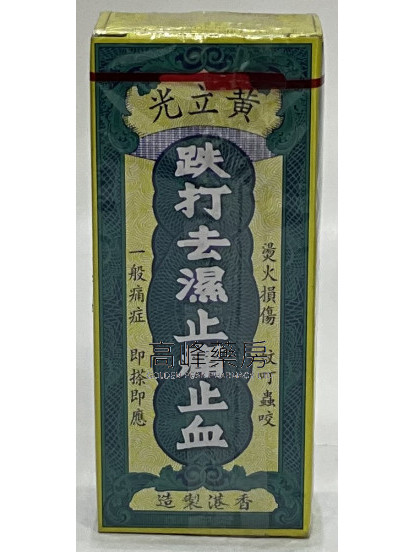 黃立光
燙火損傷 蚊叮蟲咬
跌打去濕止痛止血
一般痛症 即搽即應
高峰藥房
香港製造